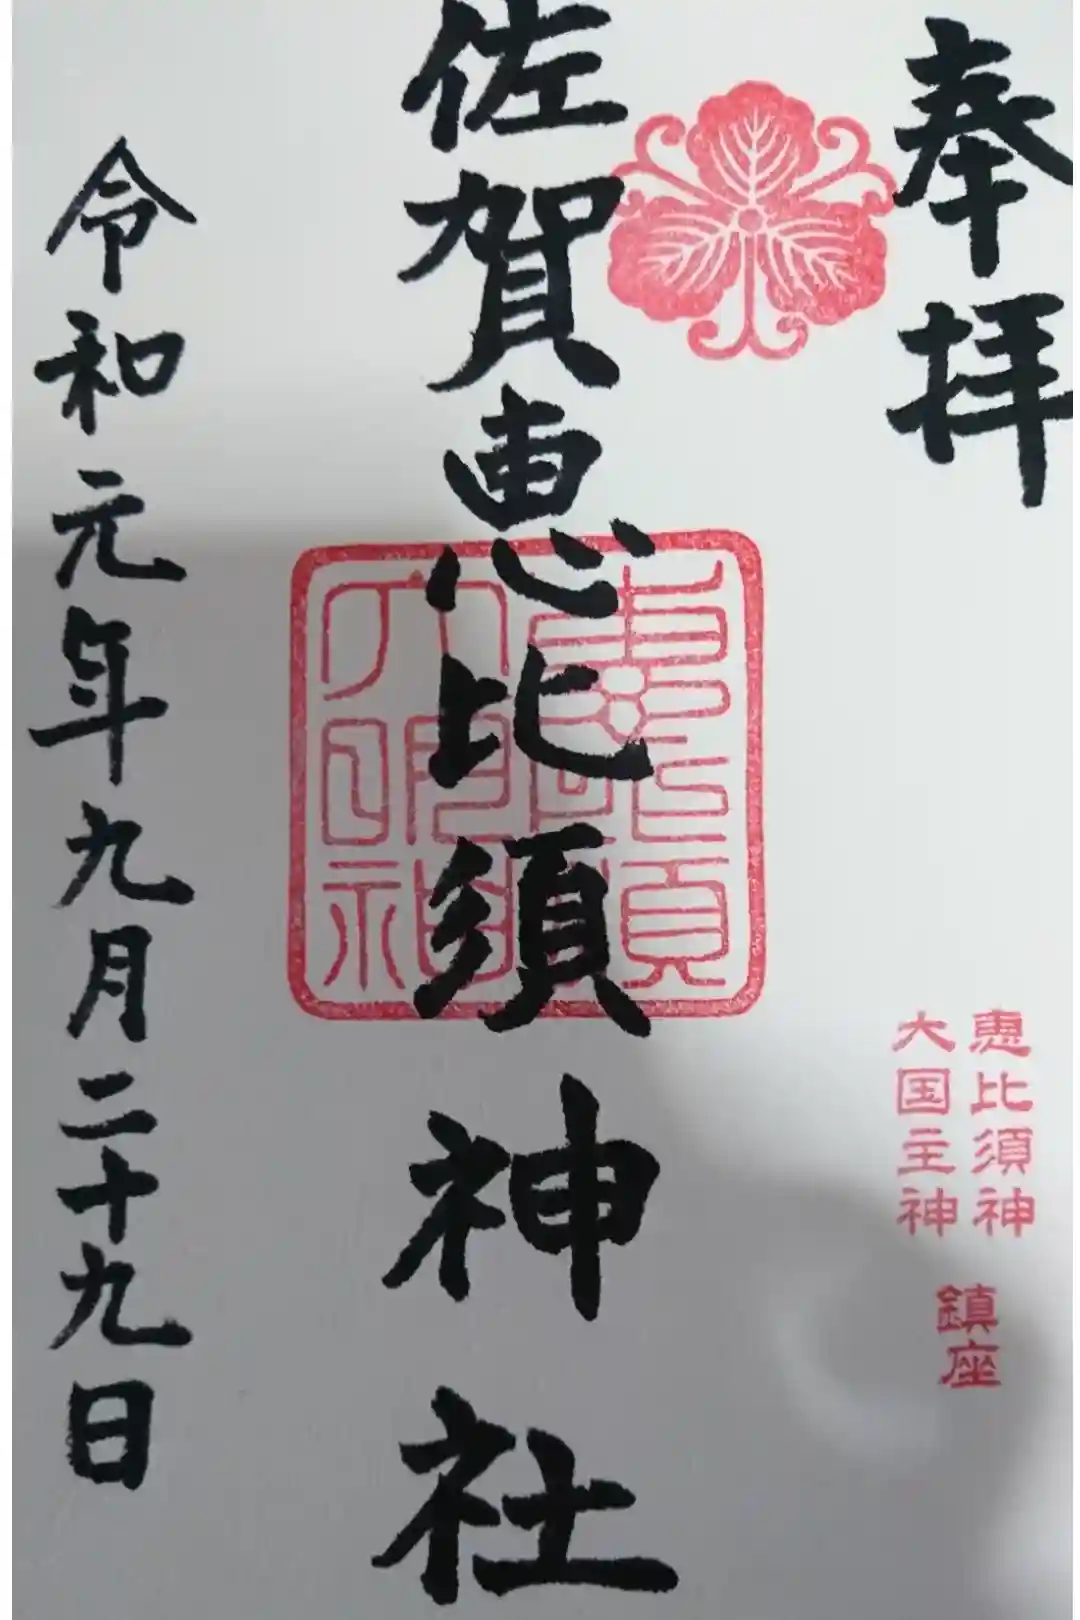 奉拝
恵比須神
大国主神
鎮座
佐賀恵比須神社
恵比須
大明神
令和元年九月二十九日